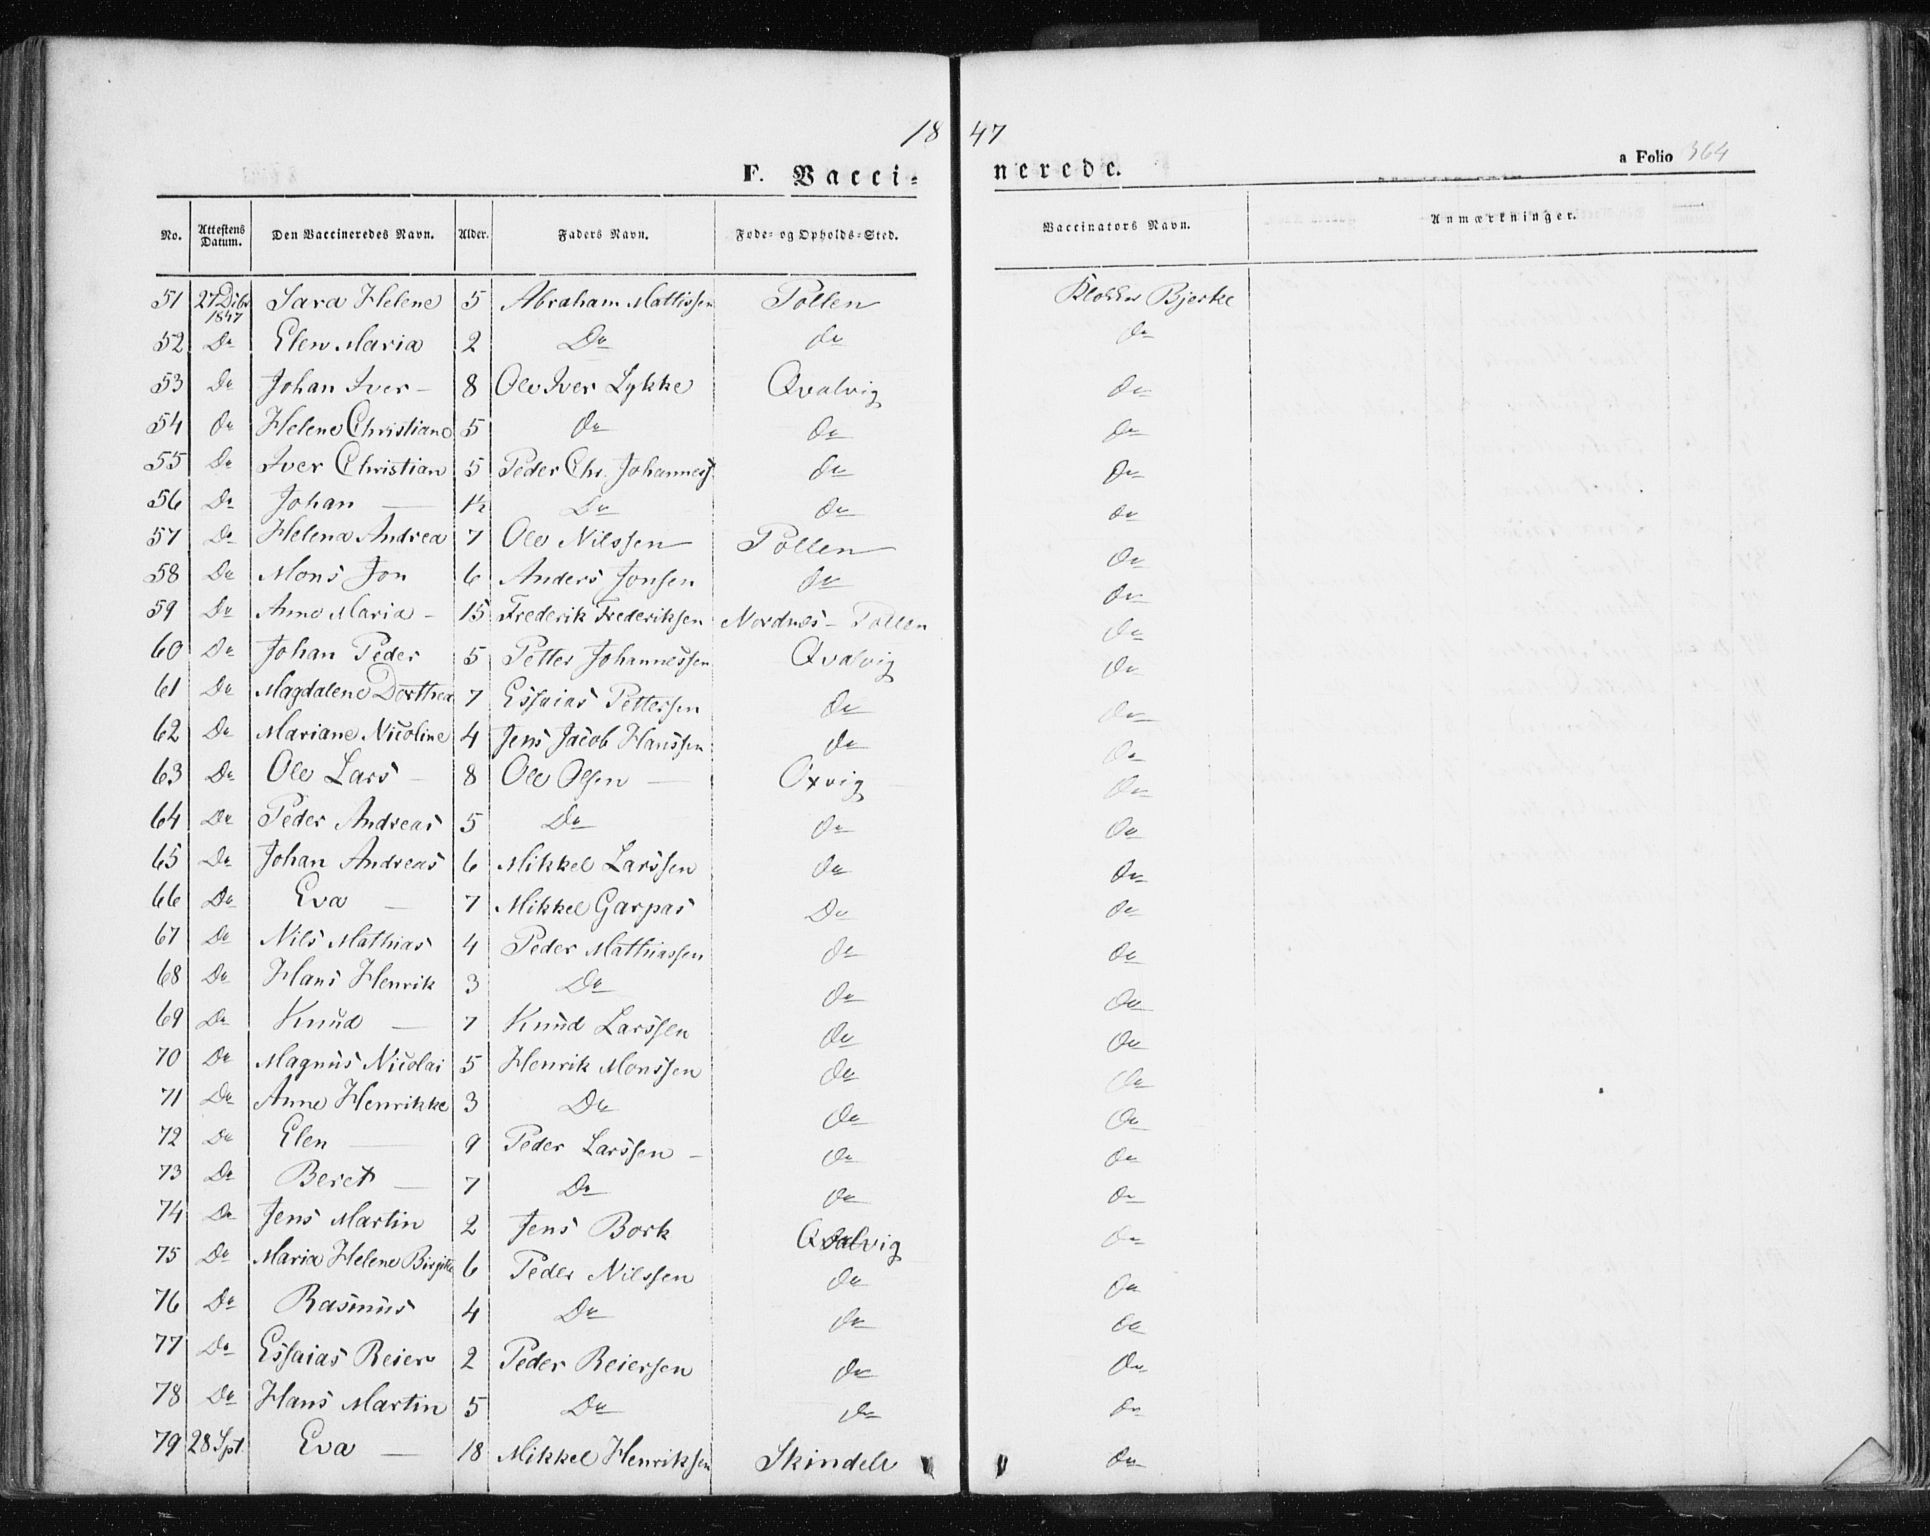 18 47
F. Vacci- nerede. a Folio 364
No. Attestens Datum. Den Vaccineredes Navn. Alder. Faders Navn. Føde- og Opholds-Sted. Vaccinators Navn. Anmærkninger.
51 27 Dcbr 1847 Sara Helene 5 Abraham Mattissen Pollen Klokker Bjerke
52 Do Elen Maria 2 Do do do
53 Do Johan Iver - 8 Ole Iver Lykke Qvalvig do
54 do Helene Christiane 5 do do do
55 Do Iver Christian 5 Peder Chr. Johanness. do do
56 Do Johan — 1½ Do do do
57 Do Helena Andrea 7 Ole Nilssen Pollen do
58 Do Mons Jon 6 Anders Jonsen do do
59 Do Anne Maria - 15 Frederik Frederiksen Nordnes - Pollen do
60 Do Johan Peder 5 Petter Johannessen Qvalvig do
61 Do Magdalene Dorthea 7 Essaias Pettersen do do
62 Do Mariane Nicoline 4 Jens Jacob Hanssen do do
63 Do Ole Lars - 8 Ole Olsen — Oxvig do
64 Do Peder Andreas 5 Do do do
65 Do Johan Andreas 6 Mikkel Larssen do do
66 Do Eva — 7 Mikkel Garpas Do do
67 Do Nils Mathias 4 Peder Mathiassen do do
68 Do Hans Henrik 3 Do do do
69 Do Knud — 7 Knud Larssen do do
70 Do Magnus Nicolai 5 Henrik Monssen do do
71 Do Anne Henrikke 3 Do do do
72 Do Elen — 9 Peder Larssen - do do
73 Do Beret — 7 Do do do
74 Do Jens Martin 2 Jens Bork Qvalvig do
75 Do Maria Helene Birgitte 6 Peder Nilssen do do
76 Do Rasmus 4 Do do do
77 Do Essaias Reier 2 Peder Reiersen do do
78 Do Hans Martin 5 Do do do
79 28 Spt. Eva — 18 Mikkel Henriksen Skindelv do